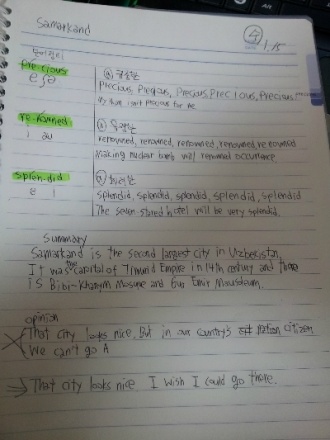 Samarkand
수 1.15
단어정리
pre·cious
precious, precious, precious, precious, precious!
My bum isn't precious for me.
re·nowned
renowned, renowned, renowned, renowned, renowned
Making nuclear bomb will renowned occurrence.
splen·did
splendid, splendid, splendid, splendid, splendid
The seven-stared hotel will be very splendid.
Summary
Samarkand is the second largest city in Uzbekistan.
It was the capital of Timurid Empire in 14th century and there
is Bibi-Khanym Mosque and Gur Emir Mausoleum.
opinion
That city looks nice. But in our country's citizen
We can't go A
→ That city looks nice. I wish I could go there.